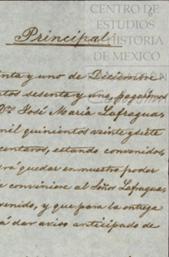 CENTRO DE
ESTUDIOS
DE HISTORIA
DE MEXICO
Principal
enta y uno de Diciembre
ntos setenta y uno, pagarimos
Dn José María Lafragua
mil quinientos veinte y siete
centavos, estando convenidos
erá quedar en nuestro poder
e conviniere al Señor Lafragua
venido, y que para la entrega
á dar aviso anticipado de